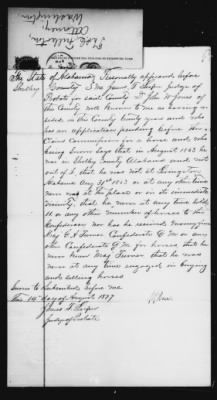 The State of Alabama Personally appeared before
Shelby County me James T Leeper Judge of
Probate for said County John W Jones of
the County well known to me as having re
sided in the County twenty years and who
has an application pending before the
Claims Commission for a horse and who
being sworn says that in August 1863 he
was in Shelby County Alabama and not
out of it that he was not at Livingston
Alabama Aug 31st 1863 or at any other time
nor was at the place or in its immediate
vicinity that he never at any time sold
11 or any other number of horses to the
Confederacy nor has he received money from
Maj Turner Confederate Q M or any
other Confederate Q M for horses that he
never knew Maj Turner that he was
never at any time engaged in buying
and selling horses
Sworn to & subscribed before me
this 14th day of August 1877
James T Leeper
Judge of Probate
Attorney
Washington